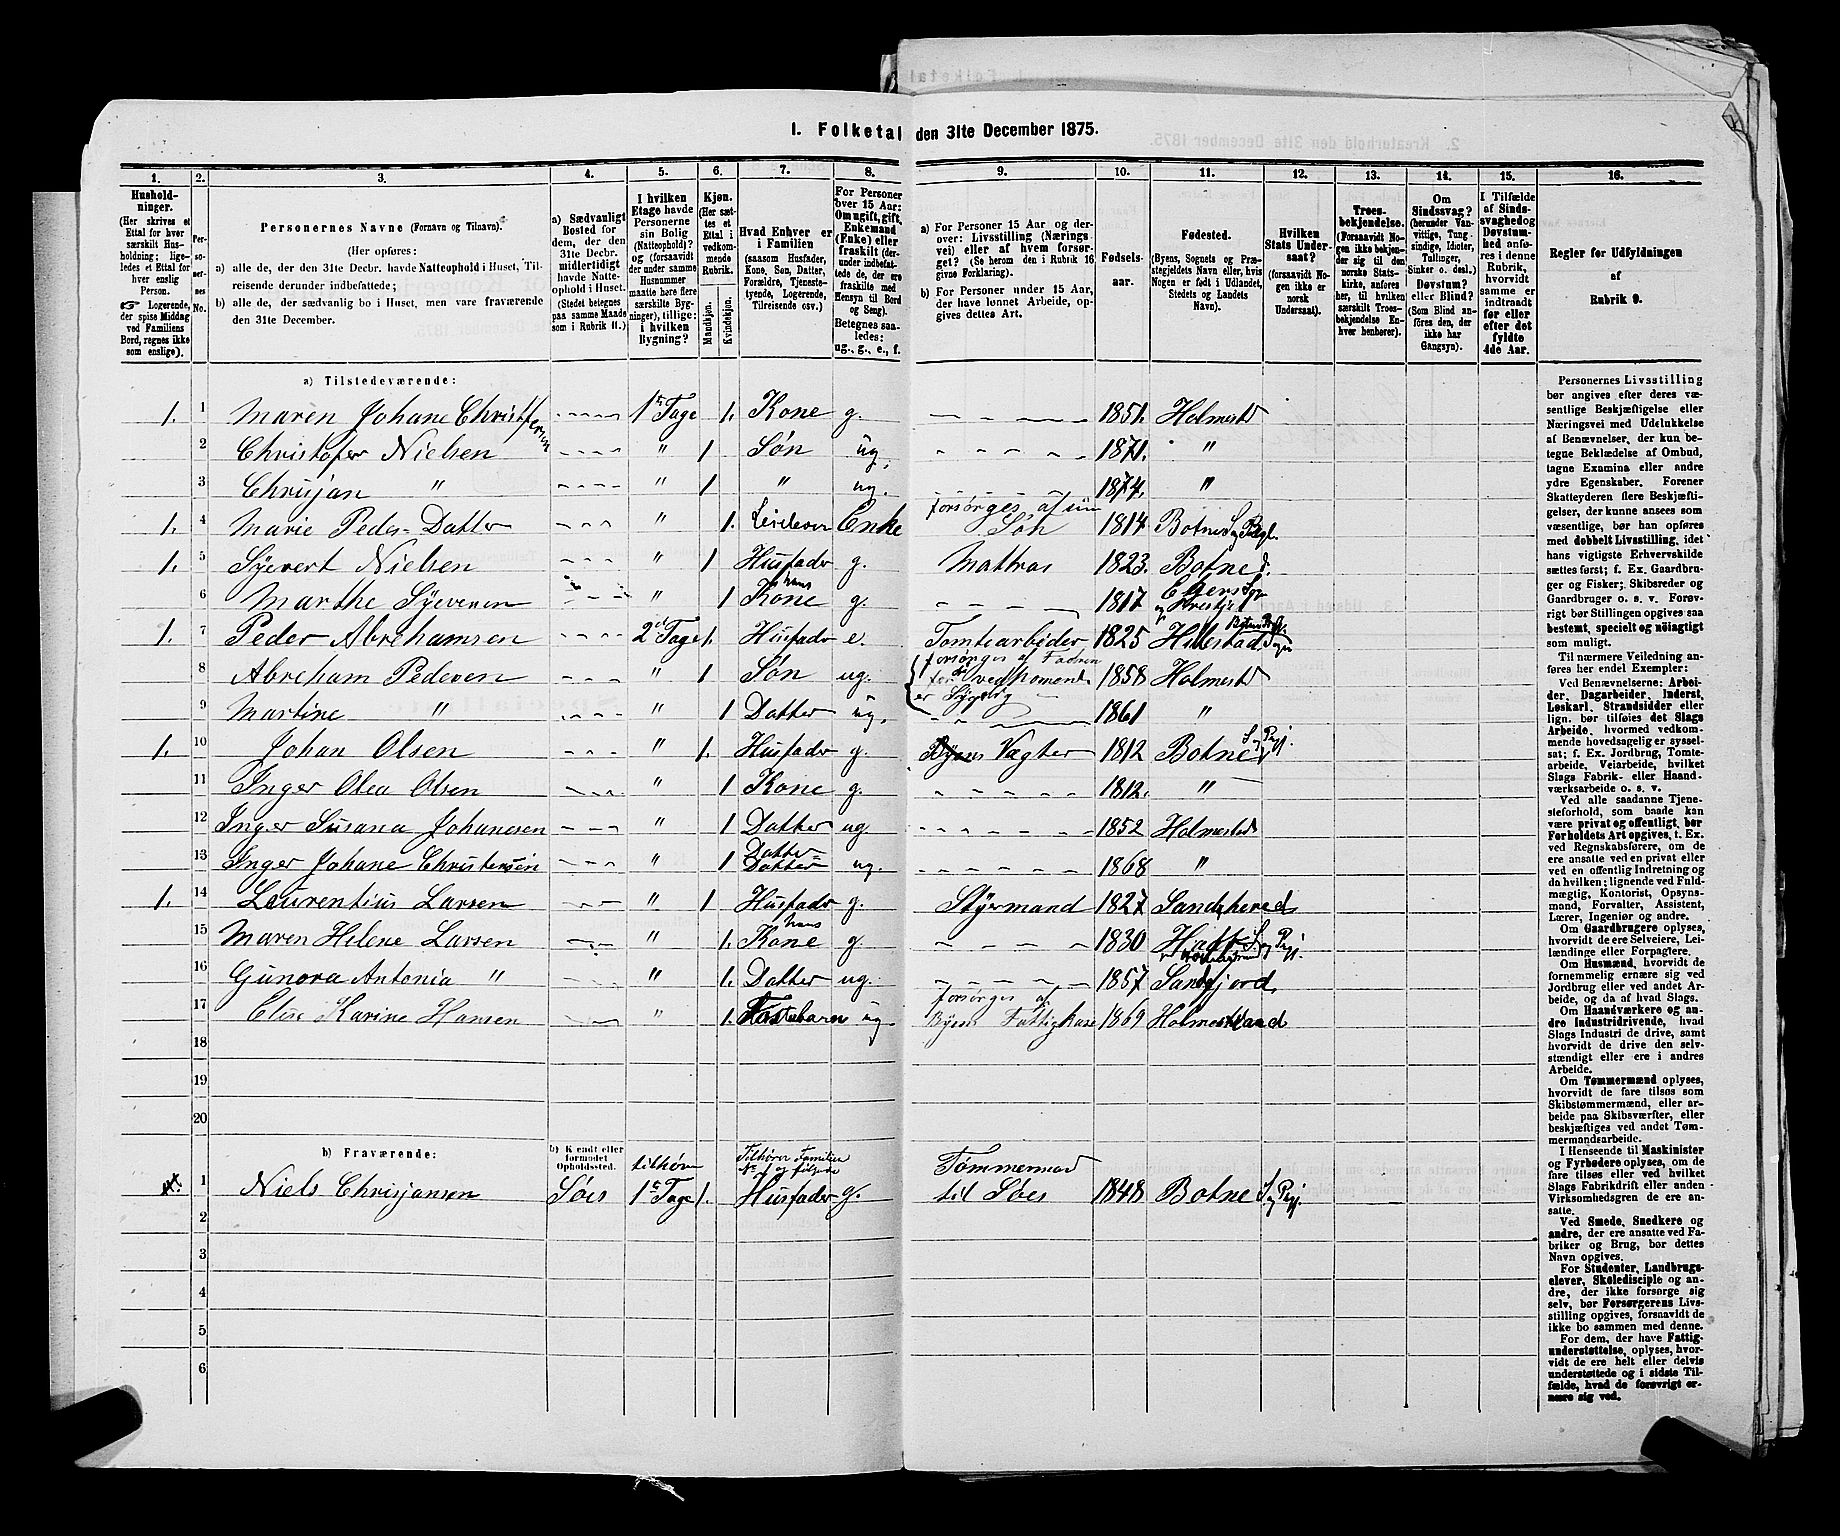 1. Folketal den 31te December 1875.
1. 2. 3. 4. 5. 6. 7. 8. 9. 10. 11. 12. 13. 14. 15. 16.
Hushold-
ninger.
(Her skrives et
Ettal for hver
særskilt Hus-
holdning; lige-
ledes et Ettal for
hver enslig
Person.
Logerende,
der spise Middag
ved Familiens
Bord, regnes ikke
som enslige).
Per-
so-
ner-
nes
No.
Personernes Navne (Fornavn og Tilnavn).
(Her opføres:
a) alle de, der den 31te Decbr. havde Natteophold i Huset, Til-
reisende derunder indbefattede;
b) alle de, der sædvanlig bo i Huset, men vare fraværende
den 31te December.
a) Sædvanligt
Bosted for
dem, der den
31te Decbr.
midlertidigt
havde Natte-
ophold i Huset.
(Stedet betegnes
paa samme Maade
som i Rubrik 11.)
I hvilken
Etage havde
Personerne
sin Bolig
(Natteophold)?
og (forsaavidt
der under samme
Husnummer
maatte høre flere
særskilte Byg-
ninger), tillige:
i hvilken
Bygning?
Kjøn.
(Her sæt-
tes et
Ettal i
vedkom-
mende
Rubrik.
Mandkjøn.
Kvindekjøn.
Hvad Enhver er
i Familien
(saasom Husfader,
Kone, Søn, Datter,
Forældre, Tjeneste-
tyende, Logerende,
Tilreisende osv.)
For Personer
over 15 Aar:
Om ugift, gift,
Enkemand
(Enke) eller
fraskilt (der-
under indbefat-
tede de, der ere
fraskilte med
Hensyn til Bord
og Seng).
Betegnes saa-
ledes:
ug., g., e., f.
a) For Personer 15 Aar og der-
over: Livsstilling (Nærings-
vei) eller af hvem forsør-
get? (Se herom den i Rubrik 16
givne Forklaring).
b) For Personer under 15 Aar,
der have lønnet Arbeide, op-
gives dettes Art.
Fødsels-
aar.
Fødested.
(Byens, Sognets og Præ-
stegjeldets Navn eller, hvis
Nogen er født i Udlandet,
Stedets og Landets
Navn).
Hvilken
Stats Under-
saat?
(forsaavidt No-
gen ikke er
norsk
Undersaat).
Troes-
bekjendelse.
(Forsaavidt No-
gen ikke bekjen-
der sig til den
norske Stats-
kirke, anføres
her, til hvilken
særskilt Troes-
bekjendelse En-
hver henhører).
Om
Sindssvag?
(herunder Van-
vittige, Tung-
sindige, Idioter,
Tullinger,
Sinker o. desl.)
Døvstum?
eller Blind?
(Som Blind an-
føres den, der
ikke har
Gangsyn).
I Tilfælde
af Sinds-
svaghed og
Døvstum-
hed anfø-
res i denne
Rubrik,
hvorvidt
samme er
indtraadt
før eller
efter det
fyldte
4de Aar.
Regler for Udfyldningen
af
Rubrik 9.
a) Tilstedeværende:
1. 1 Maren Johane Christofersen 1ste Tage 1. Kone g. 1851. Holmestd
2 Christofer Nielsen " 1 Søn ug. 1871. "
3 Chrisjan " " 1 " ug. 1874. "
1. 4 Marie Peders-Datter " 1. Enke forsørges af sin Søn 1814 Botne
1. 5 Syevert Nielsen " 1 Husfader g. Mattros 1823. Botne
6 Marthe Syeversen " 1 hans Kone g. 1817
1. 7 Peder Abrehamsen 2d Tage 1. Husfader e. Tomtearbeider 1825 Hillestad
8 Abreham Pedersen " 1 Søn ug. forsørges af Faderen 1858 Holmestd
er Sygelig
9 Martine " " 1 Datter ug. 1861 "
1. 10 Johan Olsen " 1. Husfader g. Byens Vægter 1812 Botne S og Pgj.
11 Inger Olea Olsen " 1 Kone g. 1812. "
12 Inger Susana Johanesen " 1 Datter ug. 1852 Holmestd
13 Inger Johane Christensen " 1 Datter Datter ug. 1868 "
1. 14 Laurentius Larsen " 1 Husfader g. Styrmand 1827 Sandeherred
15 Maren Helene Larsen " 1. hans Kone g. 1830
16 Gunora Antonia " " 1. Datter ug. 1857 Sandefjord.
17 Elise Karine Hansen " 1. Fostebarn ug. forsørges af Byens Fattigkase 1869 Holmestrand
18
19
20
b) Fraværende:
b) Kjendt eller
formodet
Opholdssted.
tilhører
Tilhører Familien
No 1
1 Niels Chrisjansen Søes 1ste Tage 1. Husfader g. Tømmermand til Søes 1848 Botne S og Pgj.
2
3
4
5
6
Personernes Livsstilling
bør angives efter deres væ-
sentlige Beskjæftigelse eller
Næringsvei med Udelukkelse
af Benævnelser, der kun be-
tegne Beklædelse af Ombud,
tagne Examina eller andre
ydre Egenskaber. Forener
Skatteyderen flere Beskjæfti-
gelser, der kunne ansees som
væsentlige, bør han opføres
med dobbelt Livsstilling, idet
hans vigtigste Erhvervskilde
sættes først; f. Ex. Gaardbru-
ger og Fisker; Skibsreder og
Gaardbruger o. s. v. Forøv-
rigt bør Stillingen opgives saa
bestemt, specielt og nöiagtigt
som muligt.
Til nærmere Veiledning an-
føres her endel Exempler:
Ved Benævnelserne: Arbei-
der, Dagarbeider, Inderst,
Løskarl, Strandsidder eller
lign. bør tilføies det Slags
Arbeide, hvormed vedkom-
mende hovedsagelig er syssel-
sat; f. Ex. Jordbrug, Tomte-
arbeide, Veiarbeide, hvilket
Slags Fabrik- eller Haand-
værksarbeide o. s. v.
Ved alle saadanne Tjene-
steforhold, som baade kan
være privat og offentligt, bør
Forholdets Art opgives, t. Ex.
ved Regnskabsførere, om de
ere ansatte ved en privat eller
ved en offentlig Indretning og
da hvilken; lignende ved Fuld-
mægtig, Kontorist, Opsyns-
mand, Forvalter, Assistent,
Lærer, Ingeniør og andre.
Om Gaardbrugere oplyses,
hvorvidt de ere Selveiere, Lei-
lændinge eller Forpagtere.
Om Husmænd, hvorvidt de
fornemmelig ernære sig ved
Jordbrug eller ved andet Ar-
beide, og da af hvad Slags.
Om Haandværkere og an-
dre Industridrivende, hvad
Slags Industri de drive, samt
hvorvidt de drive den selv-
stændigt eller ere i andres
Arbeide.
Om Tømmermænd oplyses,
hvorvidt de fare tilsøs som
Skibstømmermænd, eller ar-
beide paa Skibsværfter, eller
beskjæftiges ved andet Tøm-
mermandsarbeide.
I Henseende til Maskinister
og Fyrbødere oplyses, om de
fare tilsøs eller ved hvilket
Slags Fabrikdrift eller anden
Virksomhedsgren de ere an-
satte.
Ved Smede, Snedkere og
andre, der ere ansatte ved Fa-
briker og Brug, bør dettes
Navn opgives.
For Studenter, Landbrugs-
elever, Skoledisciple og an-
dre, der ikke forsørge sig
selv, bør Forsørgerens Livs-
stilling opgives, forsaavidt de
ikke bo sammen med denne.
For dem, der have Fattig-
understøttelse, oplyses, hvor-
vidt de ere helt eller delvis
understøttede og i sidste Til-
fælde, hvad de forøvrigt er-
nære sig ved.